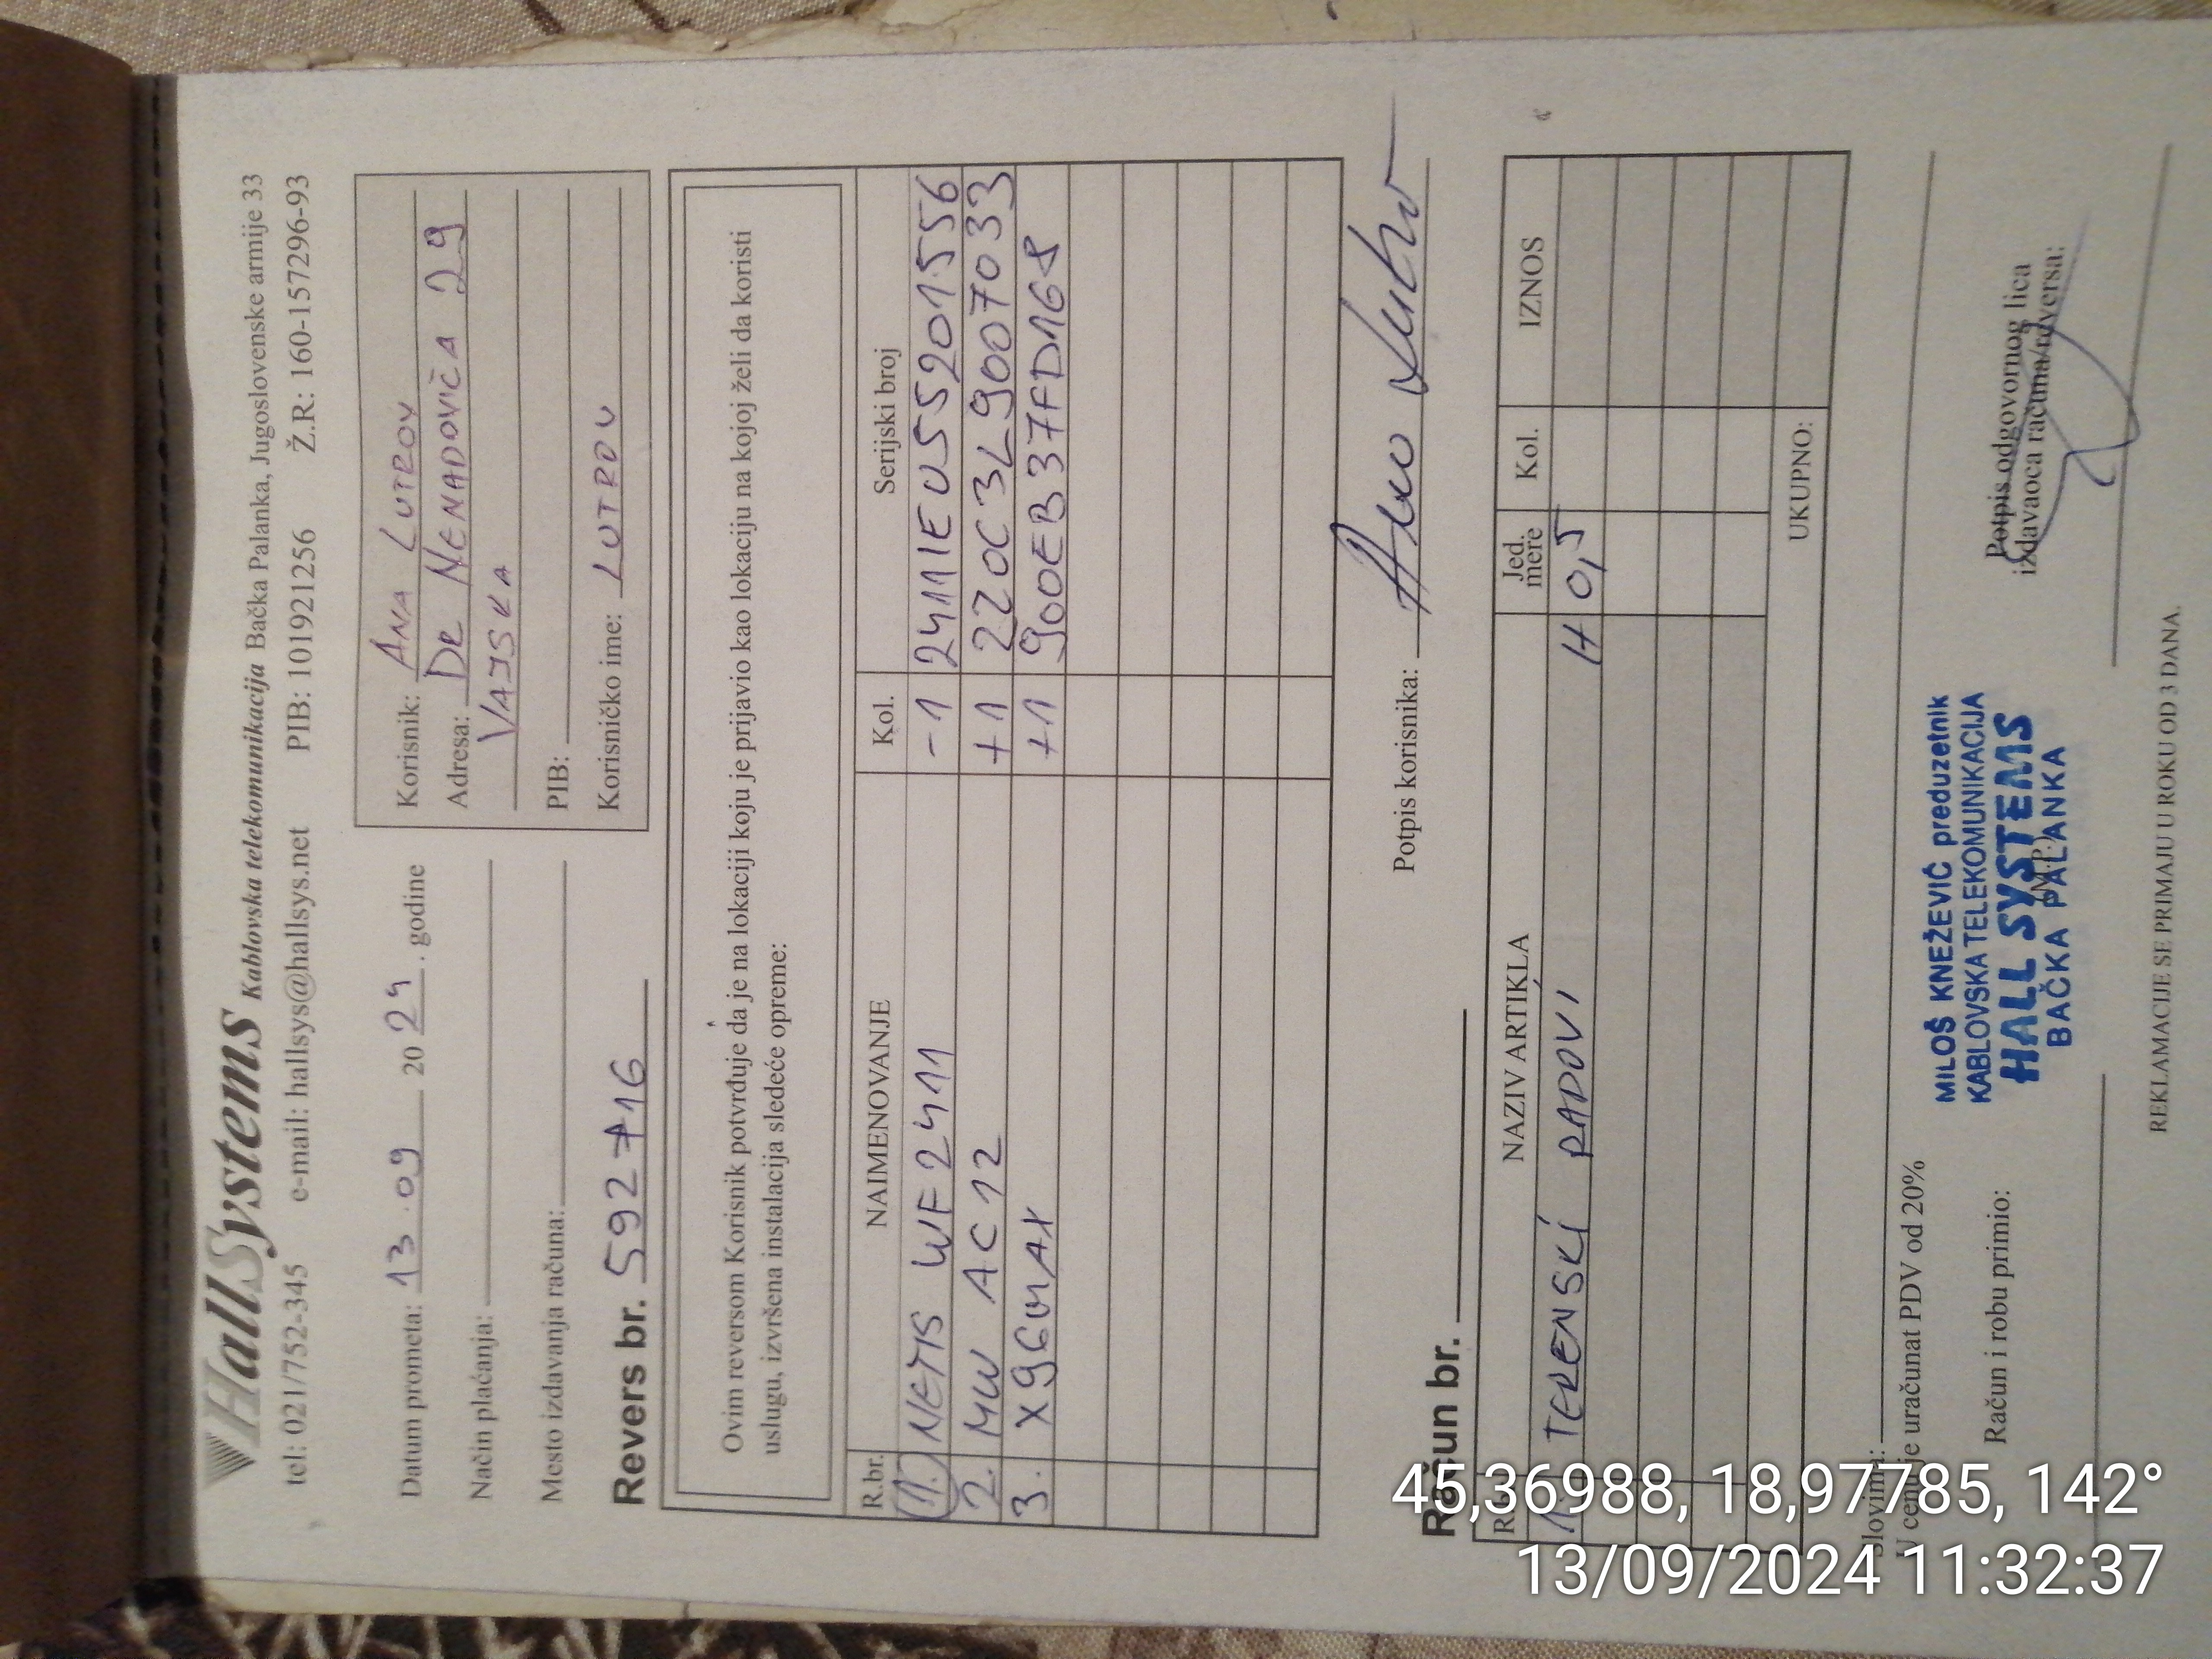 HallSystems Kablovska telekomunikacija Bačka Palanka, Jugoslovenske armije 33
tel: 021/752-345 e-mail: hallsys@hallsys.net PIB: 101921256 Ž.R: 160-157296-93
Datum prometa: 13.09 2024. godine
Način plaćanja:
Mesto izdavanja računa:
Revers br. 592716
Korisnik: ANA LUTROV
Adresa: DR NENADOVIĆA 29
VAJSKA
PIB:
Korisničko ime: LUTROV
Ovim reversom Korisnik potvrđuje da je na lokaciji koju je prijavio kao lokaciju na kojoj želi da koristi
uslugu, izvršena instalacija sledeće opreme:
R.br. NAIMENOVANJE Kol. Serijski broj
1. NETIS WF2411 -1 2411IEU55201556
2. MW AC12 +1 220C3L9007033
3. +1 900EB37FD168
Potpis korisnika:
Račun br.
NAZIV ARTIKLA Jed. mere Kol. IZNOS
1. TERENSKI RADOVI H 0,5
UKUPNO:
Slovima:
U cenu je uračunat PDV od 20%
Račun i robu primio:
MILOŠ KNEŽEVIĆ preduzetnik
KABLOVSKA TELEKOMUNIKACIJA
HALL SYSTEMS
BAČKA PALANKA
M.P.
Potpis odgovornog lica
izdavaoca računa/reversa:
REKLAMACIJE SE PRIMAJU U ROKU OD 3 DANA.
45,36988, 18,97785, 142°
13/09/2024 11:32:37